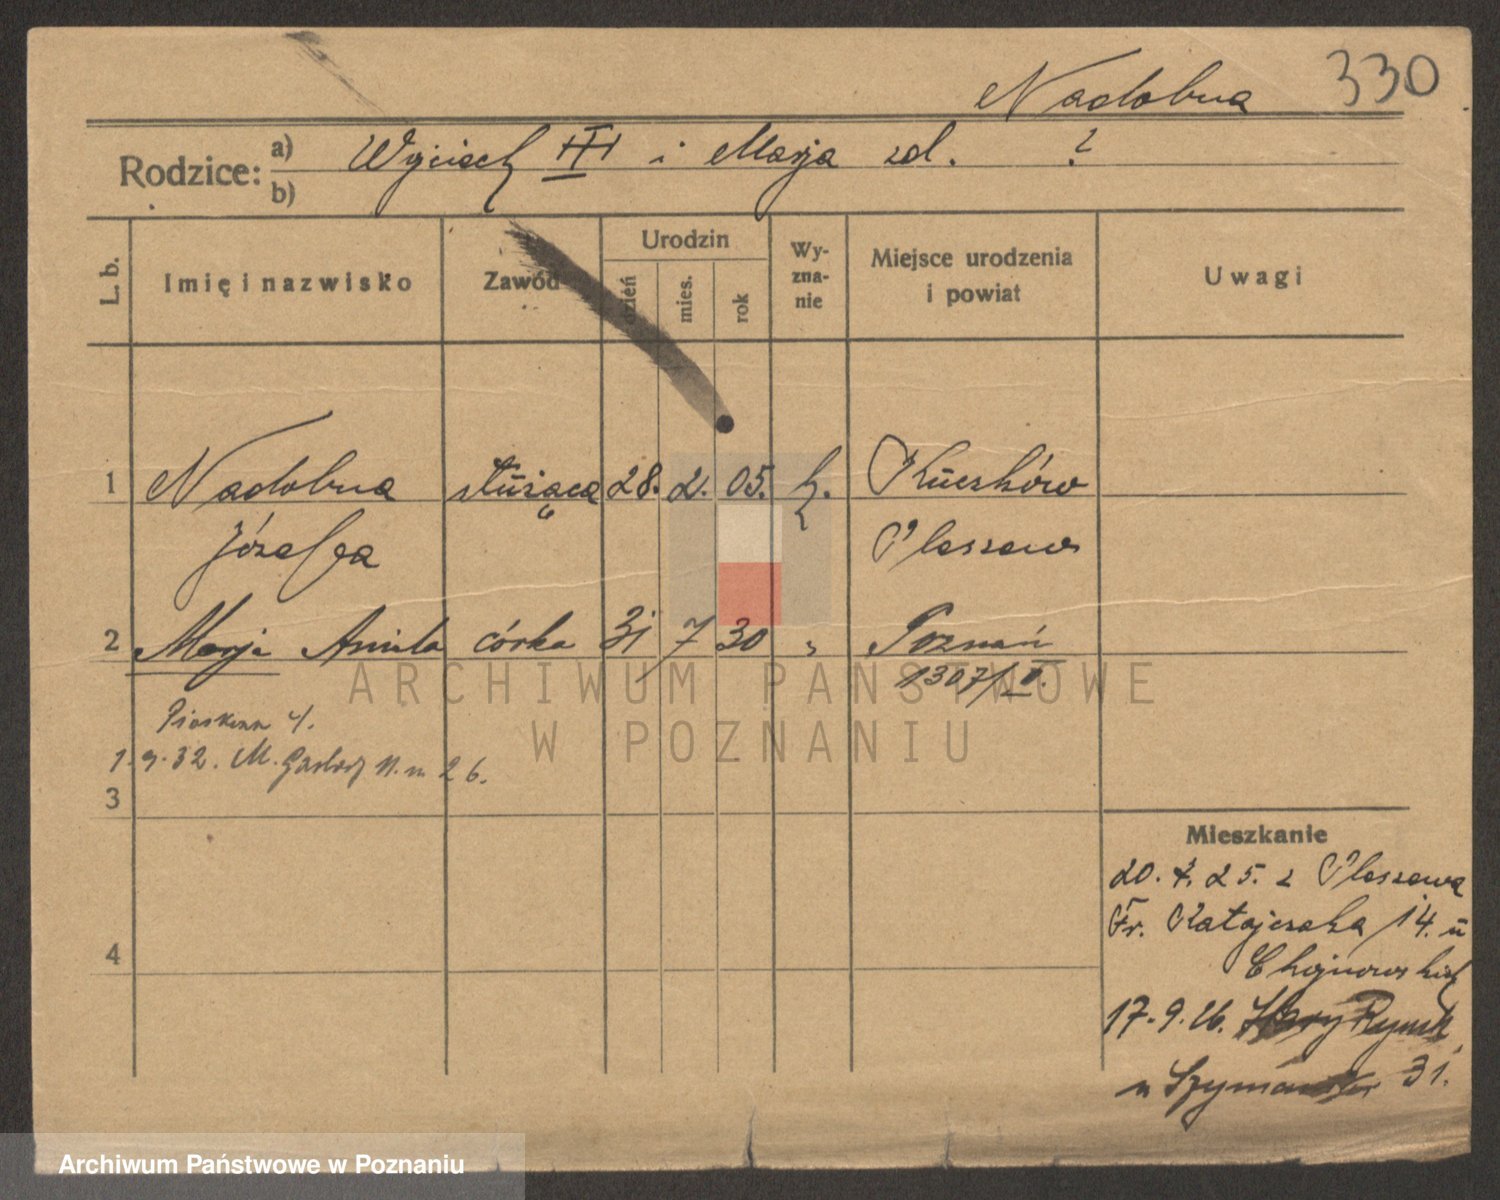 Nadobna 330
Rodzice: a) Wojciech III i Marja zd. ?
b)
L. b. Imię i nazwisko Zawód Urodzin dzień mies. rok Wy-zna-nie Miejsce urodzenia i powiat Uwagi
1 Nadobna służąca 28. 2. 05. k. Kuczków
Józefa Pleszew
2 Marja Aniela córka 31 7 30 " Poznań
1307/II.
1.9.32. M. 11. m 26.
3
Mieszkanie
20. 4. 25. z Pleszewa
Fr. Ratajczaka 14. u
Chojnowskich
4
17.9.26. Stary Rynek
u 31.
ARCHIWUM PAŃSTWOWE
W POZNANIU
Archiwum Państwowe w Poznaniu